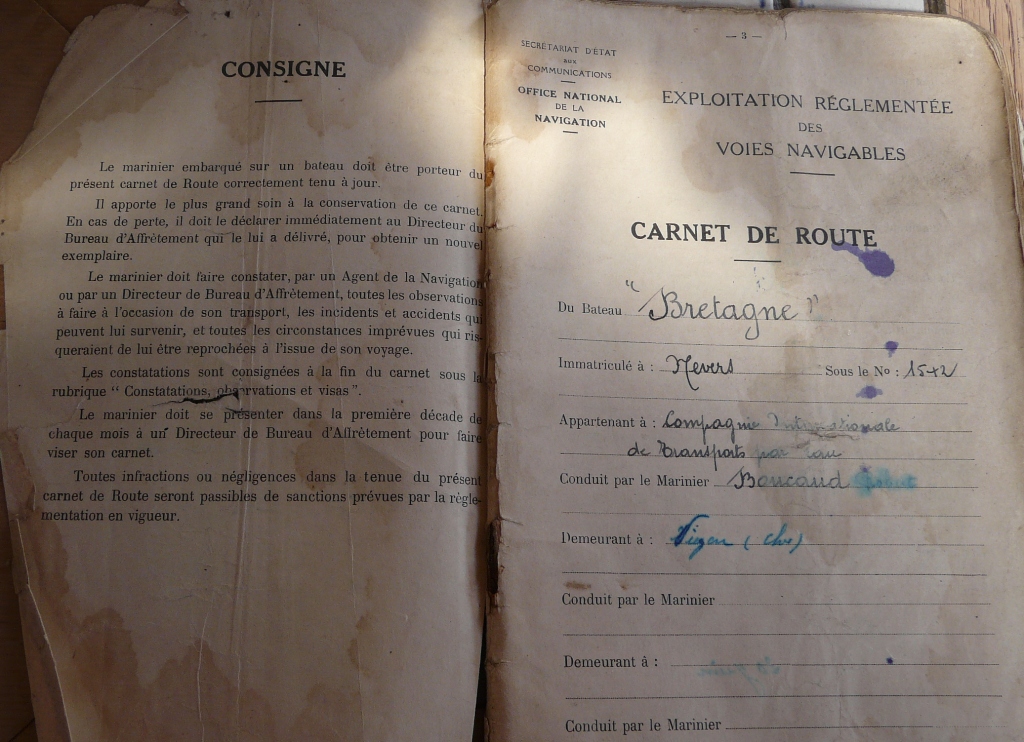 CONSIGNE
Le marinier embarqué sur un bateau doit être porteur du
présent carnet de Route correctement tenu à jour.
Il apporte le plus grand soin à la conservation de ce carnet.
En cas de perte, il doit le déclarer immédiatement au Directeur du
Bureau d'Affrètement qui le lui a délivré, pour obtenir un nouvel
exemplaire.
Le marinier doit faire constater, par un Agent de la Navigation
ou par un Directeur de Bureau d'Affrètement, toutes les observations
à faire à l'occasion de son transport, les incidents et accidents qui
peuvent lui survenir, et toutes les circonstances imprévues qui ris-
queraient de lui être reprochées à l'issue de son voyage.
Les constatations sont consignées à la fin du carnet sous la
rubrique " Constatations, observations et visas ".
Le marinier doit se présenter dans la première décade de
chaque mois à un Directeur de Bureau d'Affrètement pour faire
viser son carnet.
Toutes infractions ou négligences dans la tenue du présent
carnet de Route seront passibles de sanctions prévues par la régle-
mentation en vigueur.
— 3 —
SECRÉTARIAT D'ÉTAT
aux
COMMUNICATIONS
OFFICE NATIONAL
DE LA
NAVIGATION
EXPLOITATION RÉGLEMENTÉE
DES
VOIES NAVIGABLES
CARNET DE ROUTE
Du Bateau "Bretagne"
Immatriculé à : Nevers Sous le No :
Appartenant à : Compagnie Internationale
de Transports par Eau
Conduit par le Marinier Boucaud
Demeurant à : (Cher)
Conduit par le Marinier
Demeurant à :
Conduit par le Marinier